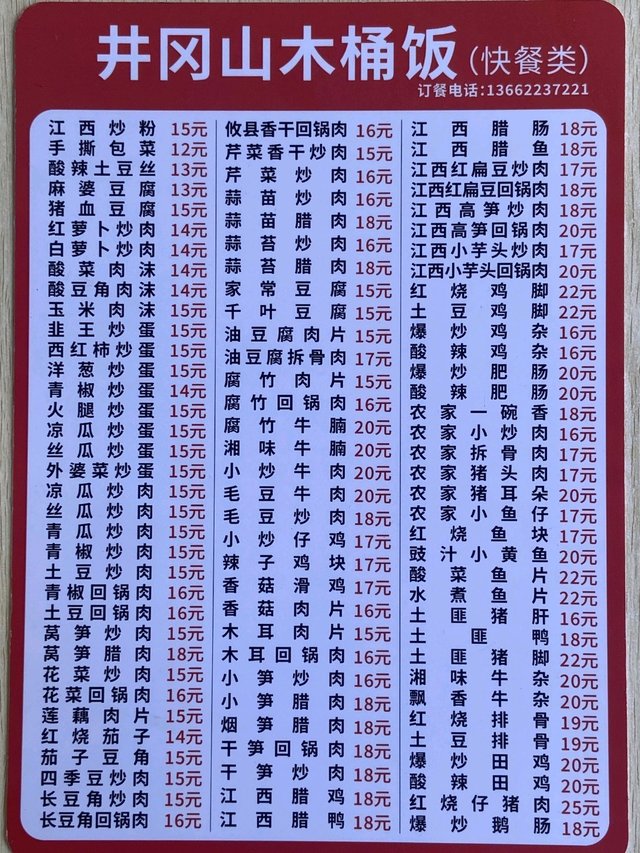 井冈山木桶饭(快餐类)
订餐电话:13662237221
江西炒粉 15元
手撕包菜 12元
酸辣土豆丝 13元
麻婆豆腐 13元
猪血豆腐 15元
红萝卜炒肉 14元
白萝卜炒肉 14元
酸菜肉沫 14元
酸豆角肉沫 14元
玉米肉沫 15元
韭王炒蛋 15元
西红柿炒蛋 15元
洋葱炒蛋 15元
青椒炒蛋 14元
火腿炒蛋 15元
凉瓜炒蛋 15元
丝瓜炒蛋 15元
外婆菜炒蛋 15元
凉瓜炒肉 15元
丝瓜炒肉 15元
青瓜炒肉 15元
青椒炒肉 15元
土豆炒肉 15元
青椒回锅肉 16元
土豆回锅肉 16元
莴笋炒肉 15元
莴笋腊肉 18元
花菜炒肉 15元
花菜回锅肉 16元
莲藕肉片 15元
红烧茄子 14元
茄子豆角 15元
四季豆炒肉 15元
长豆角炒肉 15元
长豆角回锅肉 16元
攸县香干回锅肉 16元
芹菜香干炒肉 15元
芹菜炒肉 16元
蒜苗炒肉 16元
蒜苗腊肉 18元
蒜苔炒肉 16元
蒜苔腊肉 18元
家常豆腐 15元
千叶豆腐 15元
油豆腐肉片 15元
油豆腐拆骨肉 17元
腐竹肉片 15元
腐竹回锅肉 16元
腐竹牛腩 20元
湘味牛腩 20元
小炒牛肉 20元
毛豆牛肉 20元
毛豆炒肉 18元
小炒仔鸡 17元
辣子鸡块 17元
香菇滑鸡 17元
香菇肉片 16元
木耳肉片 15元
木耳回锅肉 16元
小笋炒肉 16元
小笋腊肉 18元
烟笋腊肉 18元
干笋回锅肉 18元
干笋炒肉 18元
江西腊鸡 18元
江西腊鸭 18元
江西腊肠 18元
江西腊鱼 18元
江西红扁豆炒肉 17元
江西红扁豆回锅肉 18元
江西高笋炒肉 18元
江西高笋回锅肉 20元
江西小芋头炒肉 17元
江西小芋头回锅肉 20元
红烧鸡脚 22元
土豆鸡脚 22元
爆炒鸡杂 16元
酸辣鸡杂 16元
爆炒肥肠 20元
酸辣肥肠 20元
农家一碗香 18元
农家小炒肉 16元
农家拆骨肉 17元
农家猪头肉 17元
农家猪耳朵 20元
农家小鱼仔 17元
红烧鱼块 17元
豉汁小黄鱼 20元
酸菜鱼片 22元
水煮鱼片 22元
土匪猪肝 16元
土匪鸭 18元
土匪猪脚 22元
湘味牛杂 20元
飘香牛杂 20元
红烧排骨 19元
土豆排骨 19元
爆炒田鸡 20元
酸辣田鸡 20元
红烧仔猪肉 25元
爆炒鹅肠 18元